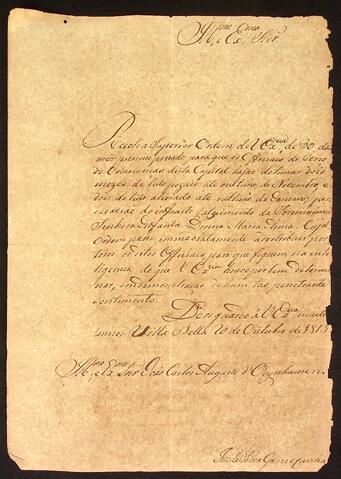 Ill.mo e Ex.mo Snr.
Recebi a Superior Ordem de V Ex.cia de 30 do
mez proximo passado para que os Officiais de
Ordenanças desta Capital hajão de tomar dois
mezes de luto pezado até o ultimo de Novembro, e
dois de luto aliviado até ultimo de Janeiro, por
occazião do infausto falecimento da Serenissima
Senhora Infanta Donna Maria Anna. Cuja
Ordem passo immediatamente a
todos os ditos Officiais para que fiquem na
inteligencia do que V Ex.cia houve por bem determi-
nar, em demonstração de hum tão penetrante
sentimento.
Deos guarde a V Ex.cia muitos
annos. Villa Bella 20 de Outubro de 1813
Ill.mo e Ex.mo Snr João Carlos Augusto d'Oeynhausen.